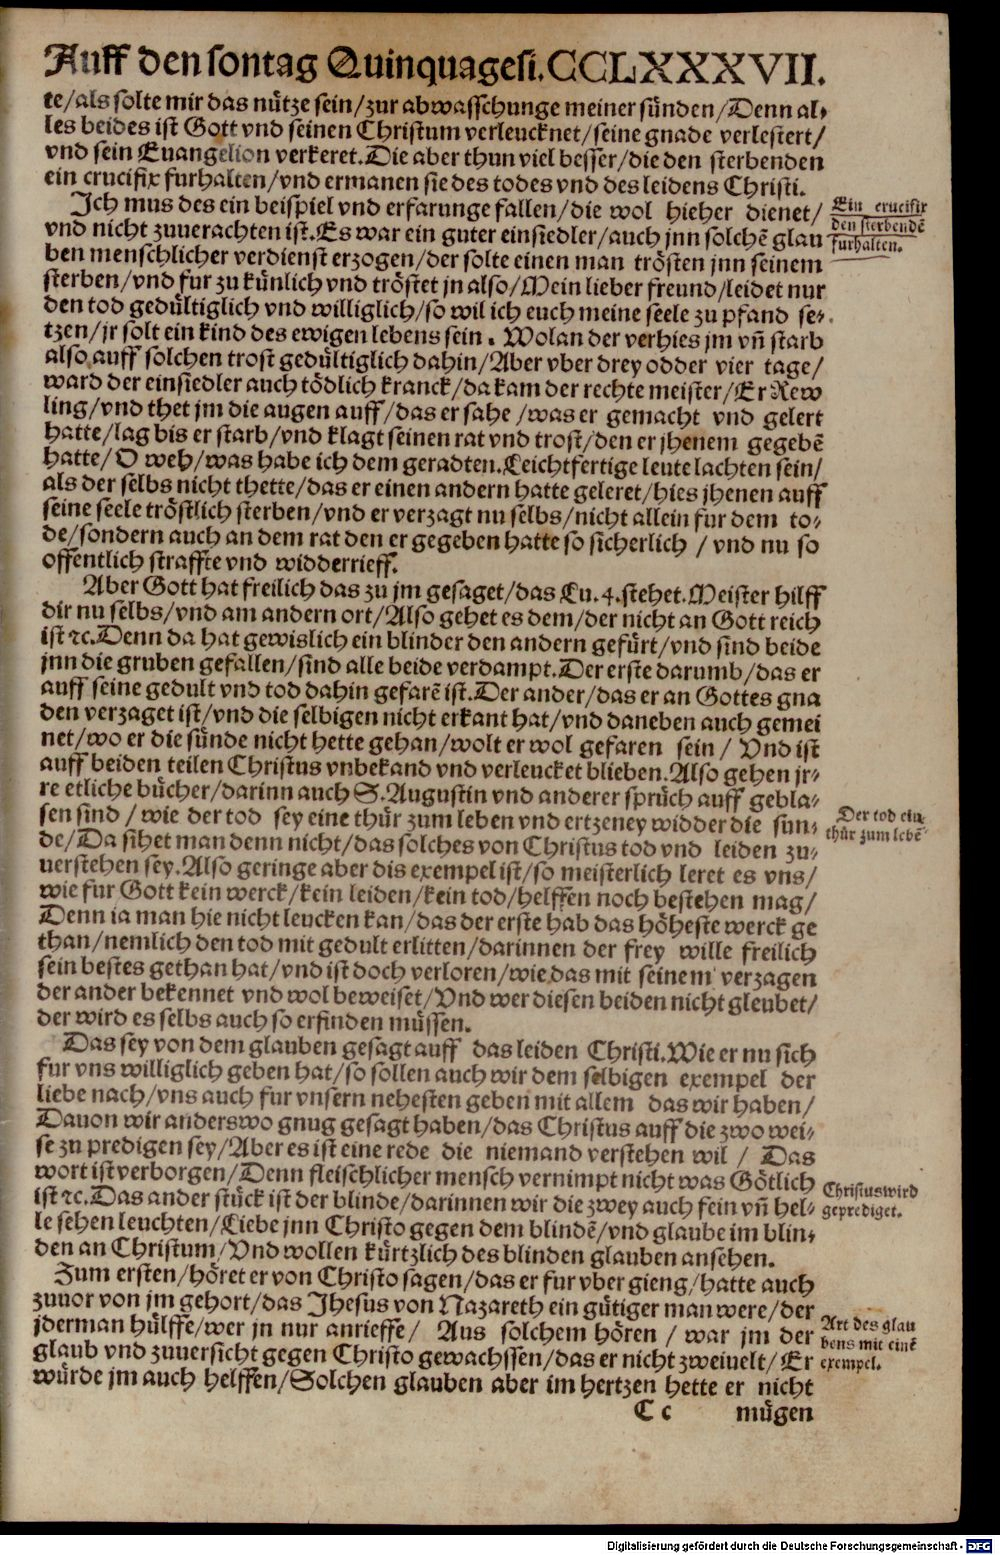 Auff den sontag Quinquagesi. CCLXXXVII.
te/als solte mir das nütze sein/zur abwasschunge meiner sünden/Denn al-
les beides ist Gott vnd seinen Christum verleucknet/seine gnade verlestert/
vnd sein Euangelion verkeret. Die aber thun viel besser/die den sterbenden
ein crucifix furhalten/vnd ermanen sie des todes vnd des leidens Christi.
Ich mus des ein beispiel vnd erfarunge fallen/die wol hieher dienet/
vnd nicht zuuerachten ist. Es war ein guter einsiedler/auch jnn solchē glau
ben menschlicher verdienst erzogen/der solte einen man trösten jnn seinem
sterben/vnd fur zu künlich vnd tröstet jn also/Mein lieber freund/leidet nur
den tod gedültiglich vnd williglich/so wil ich euch meine seele zu pfand se-
tzen/jr solt ein kind des ewigen lebens sein. Wolan der verhies jm vn̄ starb
also auff solchen trost gedültiglich dahin/Aber vber drey odder vier tage/
ward der einsiedler auch tödlich kranck/da kam der rechte meister/Er Rew
ling/vnd thet jm die augen auff/das er sahe/was er gemacht vnd gelert
hatte/lag bis er starb/vnd klagt seinen rat vnd trost/den er jhenem gegebē
hatte/O weh/was habe ich dem geradten. Leichtfertige leute lachten sein/
als der selbs nicht thette/das er einen andern hatte geleret/hies jhenen auff
seine seele tröstlich sterben/vnd er verzagt nu selbs/nicht allein fur dem to-
de/sondern auch an dem rat den er gegeben hatte so sicherlich/vnd nu so
offentlich straffte vnd widderrieff.
Aber Gott hat freilich das zu jm gesaget/das Lu. 4. stehet. Meister hilff
dir nu selbs/vnd am andern ort/Also gehet es dem/der nicht an Gott reich
ist ꝛc. Denn da hat gewislich ein blinder den andern gefürt/vnd sind beide
jnn die gruben gefallen/sind alle beide verdampt. Der erste darumb/das er
auff seine gedult vnd tod dahin gefarē ist. Der ander/das er an Gottes gna
den verzaget ist/vnd die selbigen nicht erkant hat/vnd daneben auch gemei
net/wo er die sünde nicht hette gehan/wolt er wol gefaren sein/Vnd ist
auff beiden teilen Christus vnbekand vnd verleucket blieben. Also gehen jr-
re etliche bücher/darinn auch S. Augustin vnd anderer sprüch auff gebla-
sen sind/wie der tod sey eine thür zum leben vnd ertzeney widder die sun-
de/Da sihet man denn nicht/das solches von Christus tod vnd leiden zu-
uerstehen sey. Also geringe aber dis exempel ist/so meisterlich leret es vns/
wie fur Gott kein werck/kein leiden/kein tod/helffen noch bestehen mag/
Denn ia man hie nicht leucken kan/das der erste hab das höheste werck ge
than/nemlich den tod mit gedult erlitten/darinnen der frey wille freilich
sein bestes gethan hat/vnd ist doch verloren/wie das mit seinem verzagen
der ander bekennet vnd wol beweiset/Vnd wer diesen beiden nicht gleubet/
der wird es selbs auch so erfinden müssen.
Das sey von dem glauben gesagt auff das leiden Christi. Wie er nu sich
fur vns williglich geben hat/so sollen auch wir dem selbigen exempel der
liebe nach/vns auch fur vnsern nehesten geben mit allem das wir haben/
Dauon wir anderswo gnug gesagt haben/das Christus auff die zwo wei-
se zu predigen sey/Aber es ist eine rede die niemand verstehen wil/Das
wort ist verborgen/Denn fleischlicher mensch vernimpt nicht was Götlich
ist ꝛc. Das ander stück ist der blinde/darinnen wir die zwey auch fein vn̄ hel-
le sehen leuchten/Liebe jnn Christo gegen dem blindē/vnd glaube im blin-
den an Christum/Vnd wollen kürtzlich des blinden glauben ansehen.
Zum ersten/höret er von Christo sagen/das er fur vber gieng/hatte auch
zuuor von jm gehort/das Jhesus von Nazareth ein gütiger man were/der
jderman hülffe/wer jn nur anrieffe/Aus solchem hören/war jm der
glaub vnd zuuersicht gegen Christo gewachssen/das er nicht zweiuelt/Er
würde jm auch helffen/Solchen glauben aber im hertzen hette er nicht
C c mügen
Ein crucifix
den sterbendē
furhalten.
Der tod ein
thür zum lebē
Christus wird
geprediget.
Art des glau
bens mit einē
exempel.
Digitalisierung gefördert durch die Deutsche Forschungsgemeinschaft - DFG